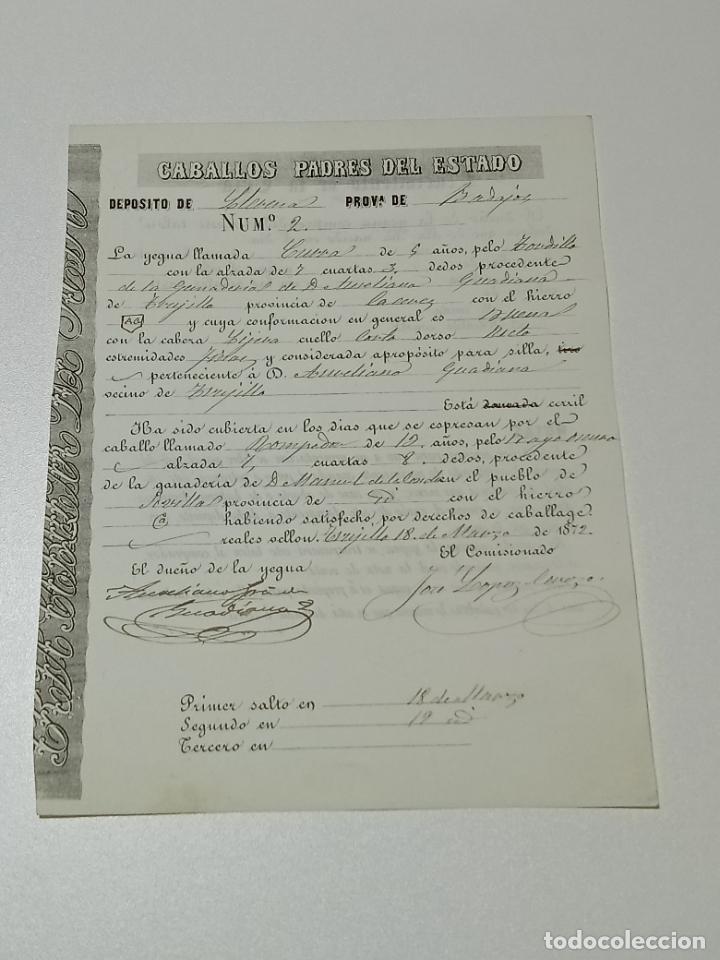 CABALLOS PADRES DEL ESTADO
DEPOSITO DE Llerena PROVª DE Badajoz
NUMº 2.
La yegua llamada Curra de 5 años, pelo Tordillo
con la alzada de 7 cuartas 3 dedos procedente
de la Ganaderia de D Aureliano Guadiana
de Trujillo provincia de Caceres con el hierro
AG y cuya conformacion en general es Buena
con la cabeza Lijera cuello Corto dorso Recto
estremidades y considerada apropósito para silla, tiro
perteneciente á D. Aureliano Guadiana
vecino de Trujillo
Está domada cerril
Ha sido cubierta en los dias que se espresan por el
caballo llamado Rompedor de 12 años, pelo
alzada 7, cuartas 8 dedos, procedente
de la ganadería de D Manuel de la en el pueblo de
Sevilla provincia de id con el hierro
habiendo satisfecho por derechos de caballage
reales vellon. Trujillo 18 de Marzo de 1872.
El dueño de la yegua El Comisionado
Aureliano Gª de José Lopez
Guadiana
Primer salto en 18 de Marzo
Segundo en 19 id
Tercero en
todocoleccion